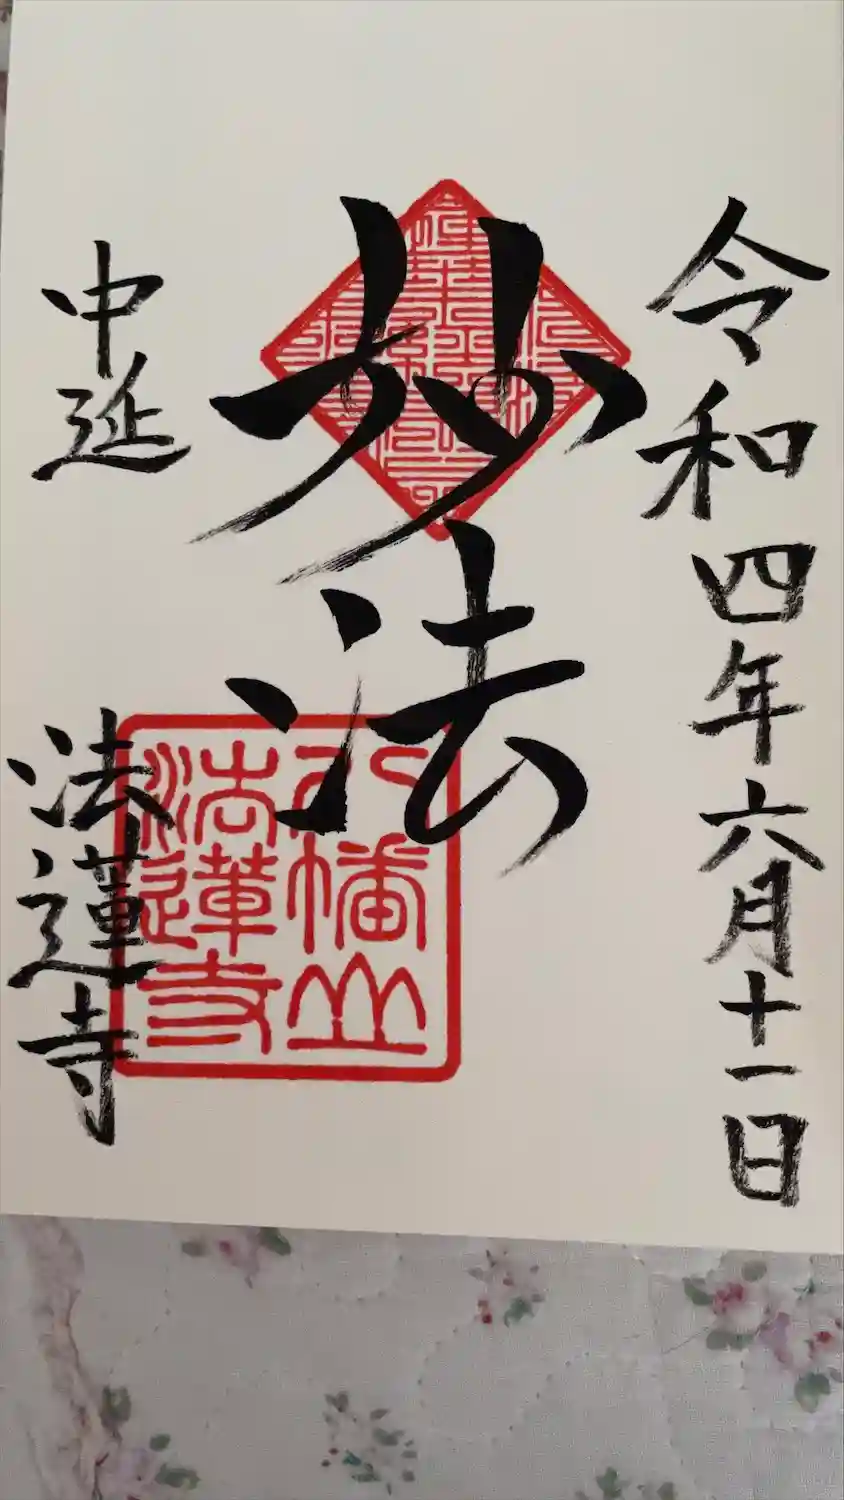 令和四年六月十一日
妙法
八幡山
法蓮寺
中延
法蓮寺